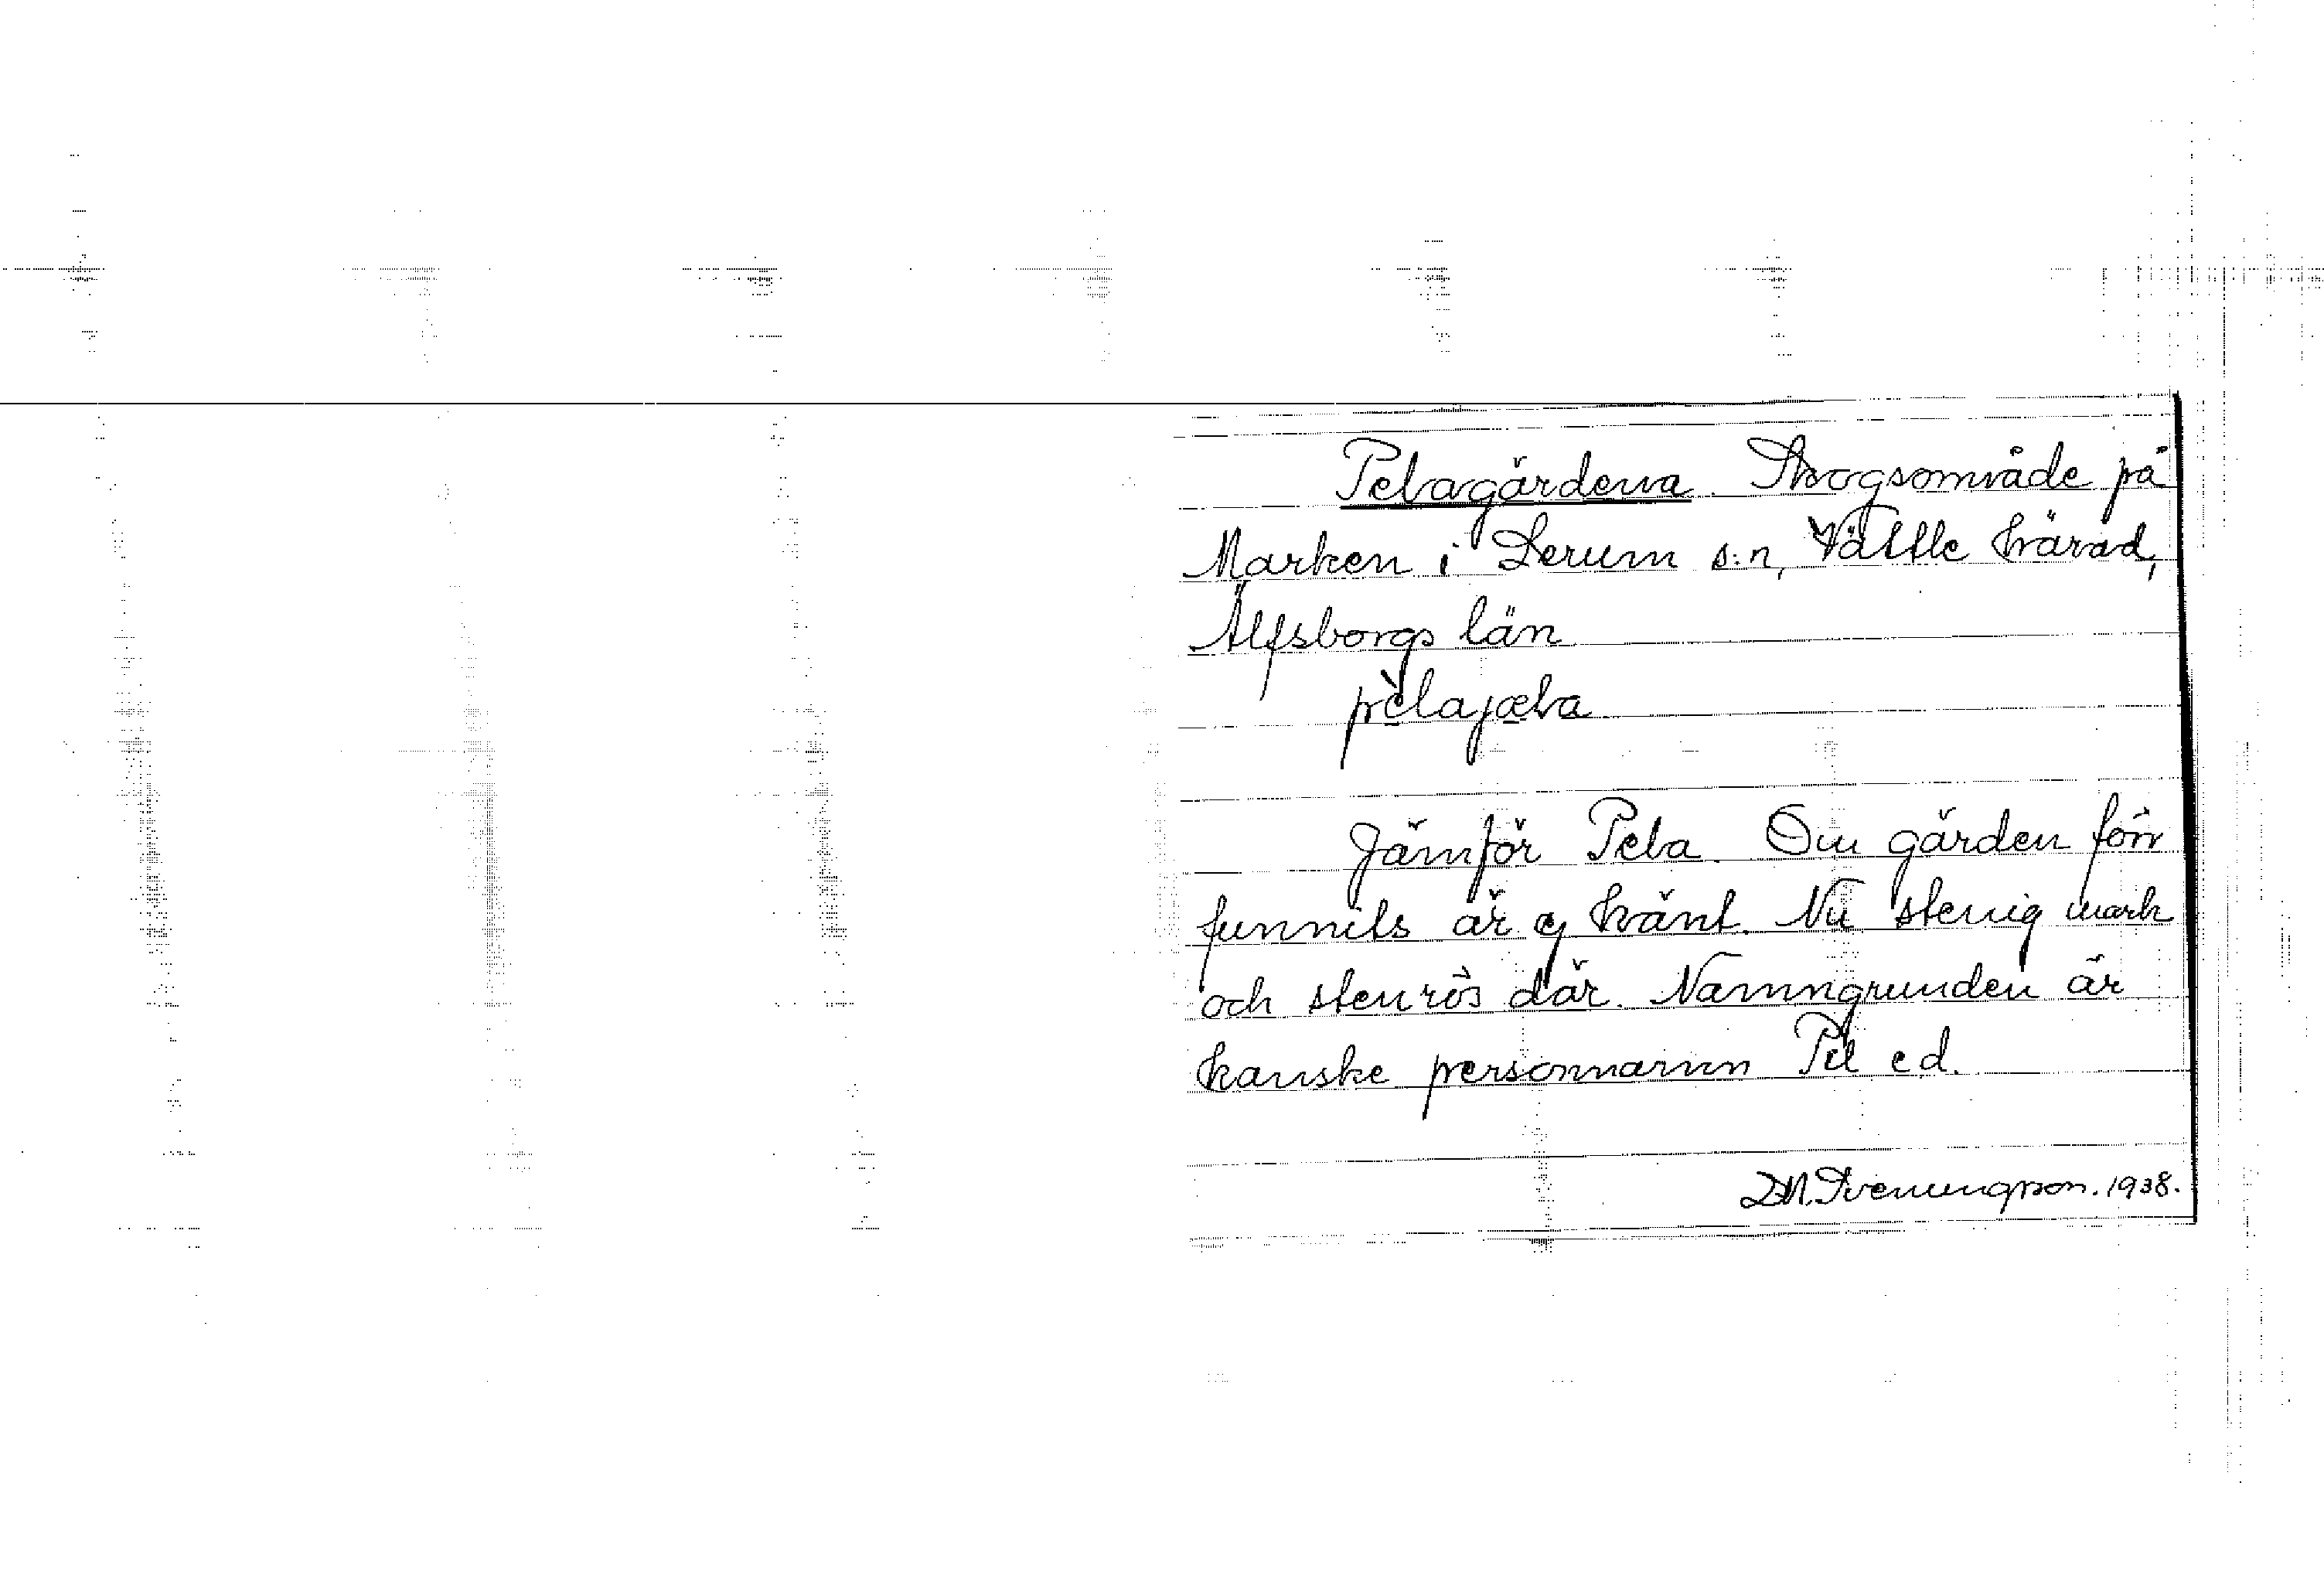 Pelagärdena. Skogsområde på
Marken i Lerum s:n, Vättle härad,
Älfsborgs län
pèlajæla
Jämför Pela. Om gärden förr
funnits är ej känt. Nu stenig mark
och stenrös där. Namngrunden är
kanske personnamn Pel e d.
D.N. Svenungsson. 1938.